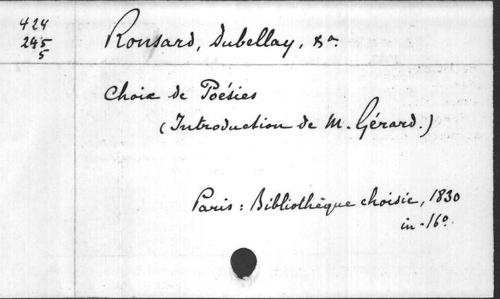 424
245
5
Ronsard, Dubellay, &a.
Choix de Poésies
(Introduction de M. Gérard.)
Paris : Bibliothèque choisie, 1830
in-16º.